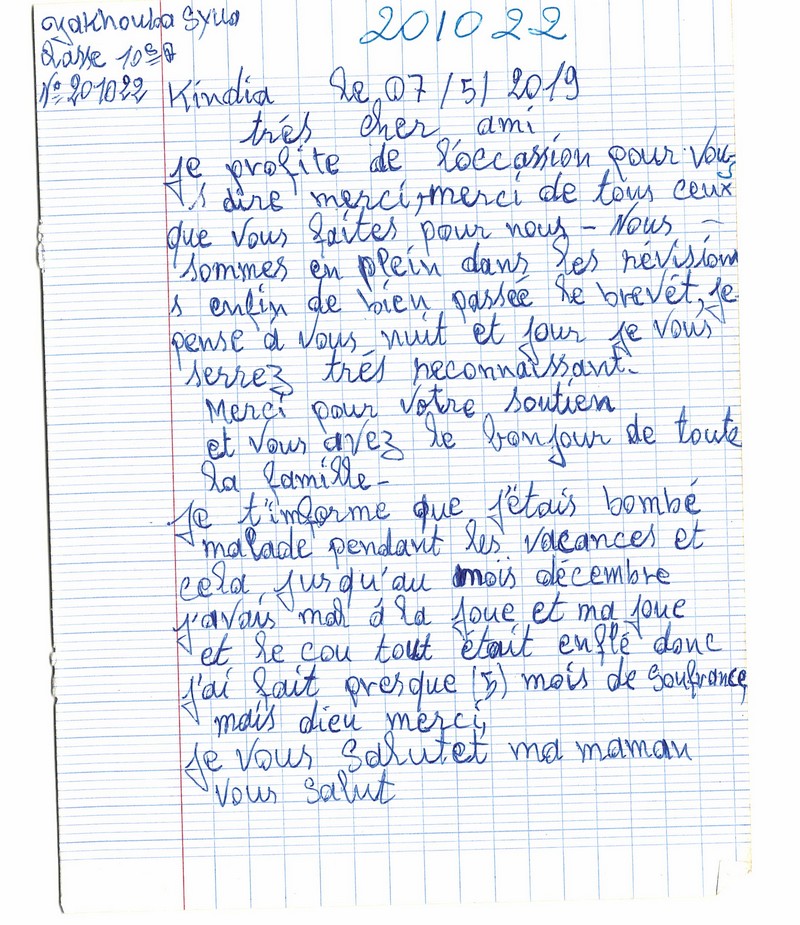 201022
Yakhouba Sylla
Classe 10e
N° 201022
Kindia le 07/5/2019
très cher ami
je profite de l'occassion pour vou
s dire merci, merci de tous ceux
que vous faites pour nous - Nous -
sommes en plein dans les révision
s enfin de bien passée le brevêt, je
pense à vous nuit et jour je vous
serrez très reconnaissant.
Merci pour votre soutien
et vous avez le bonjour de toute
la famille -
Je t'informe que j'étais bombé
malade pendant les vacances et
cela, jusqu'au mois décembre
j'avais mal à la joue et ma joue
et le cou tout était enflé donc
j'ai fait presque (5) mois de soufrance,
mais dieu merci,
je vous salut et ma maman
vous salut